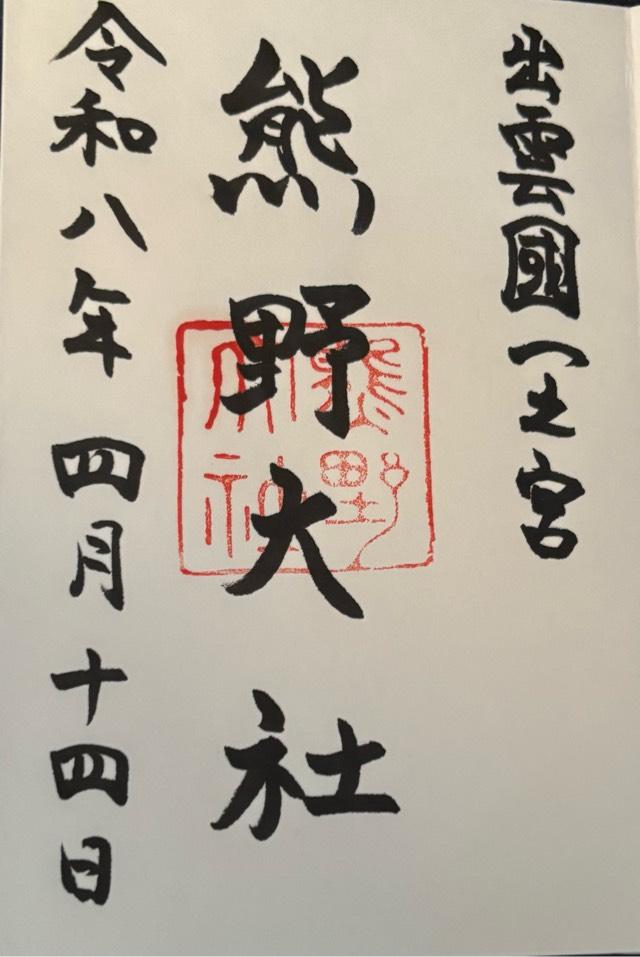 出雲國一之宮
熊野大社
熊野大社
令和八年 四月十四日